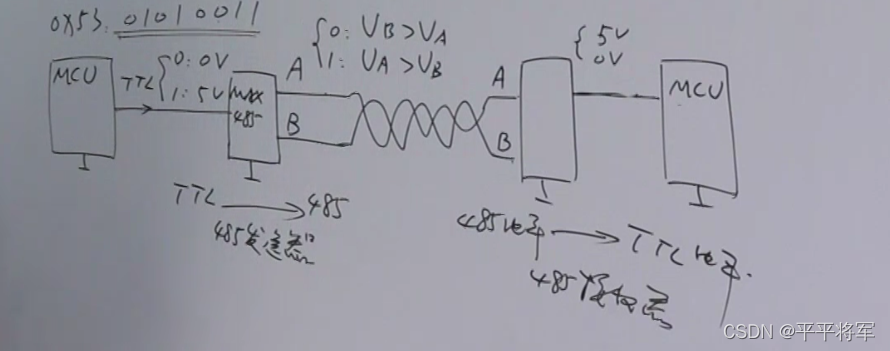 0X53: 01010011
MCU
TTL { 0: 0V
1: 5V
max
485
A
B
{ 0: UB>UA
1: UA>UB
A
B
{ 5V
0V
MCU
TTL → 485
485发送器
485电平 → TTL电平.
485接收器
CSDN @平平将军